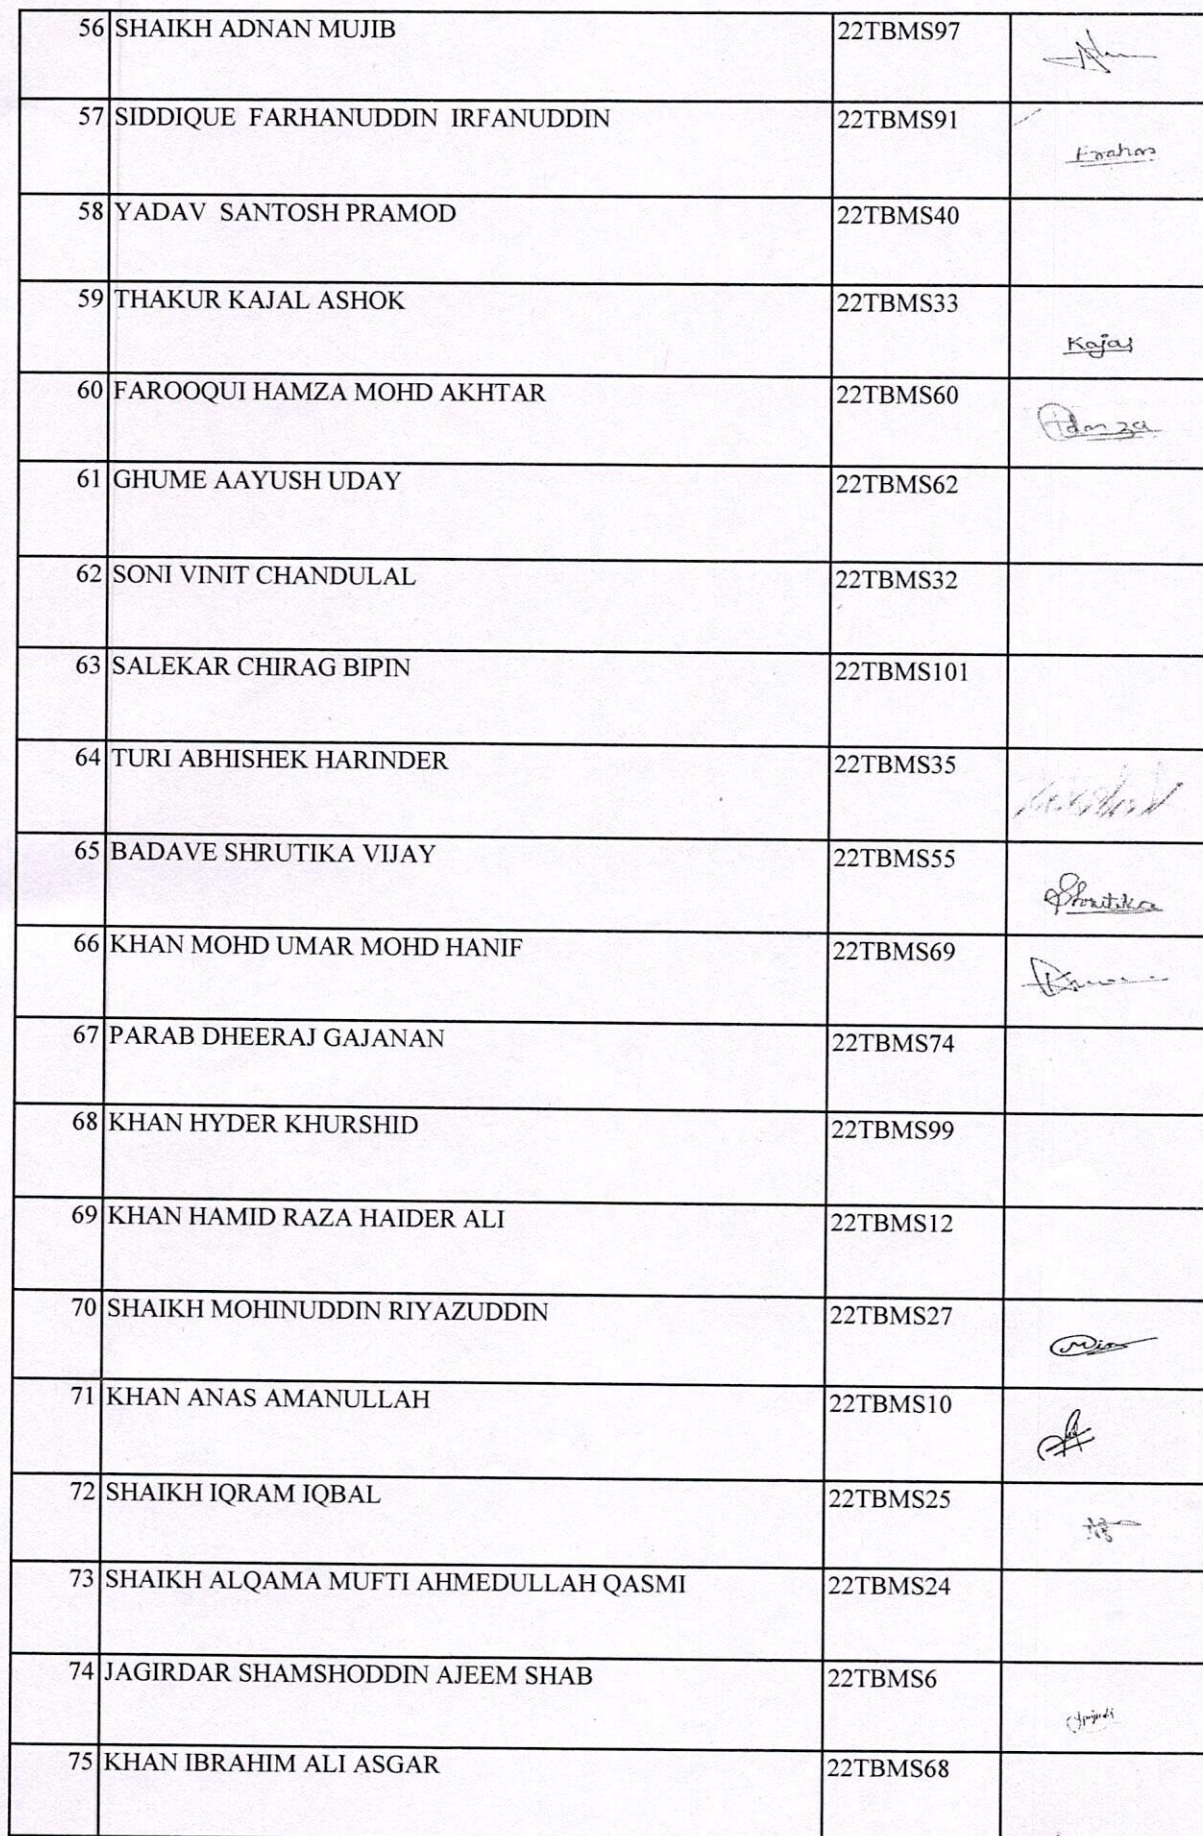 56 SHAIKH ADNAN MUJIB 22TBMS97
57 SIDDIQUE FARHANUDDIN IRFANUDDIN 22TBMS91
58 YADAV SANTOSH PRAMOD 22TBMS40
59 THAKUR KAJAL ASHOK 22TBMS33 Kajal
60 FAROOQUI HAMZA MOHD AKHTAR 22TBMS60 Hamza
61 GHUME AAYUSH UDAY 22TBMS62
62 SONI VINIT CHANDULAL 22TBMS32
63 SALEKAR CHIRAG BIPIN 22TBMS101
64 TURI ABHISHEK HARINDER 22TBMS35
65 BADAVE SHRUTIKA VIJAY 22TBMS55 Shrutika
66 KHAN MOHD UMAR MOHD HANIF 22TBMS69
67 PARAB DHEERAJ GAJANAN 22TBMS74
68 KHAN HYDER KHURSHID 22TBMS99
69 KHAN HAMID RAZA HAIDER ALI 22TBMS12
70 SHAIKH MOHINUDDIN RIYAZUDDIN 22TBMS27
71 KHAN ANAS AMANULLAH 22TBMS10
72 SHAIKH IQRAM IQBAL 22TBMS25
73 SHAIKH ALQAMA MUFTI AHMEDULLAH QASMI 22TBMS24
74 JAGIRDAR SHAMSHODDIN AJEEM SHAB 22TBMS6
75 KHAN IBRAHIM ALI ASGAR 22TBMS68